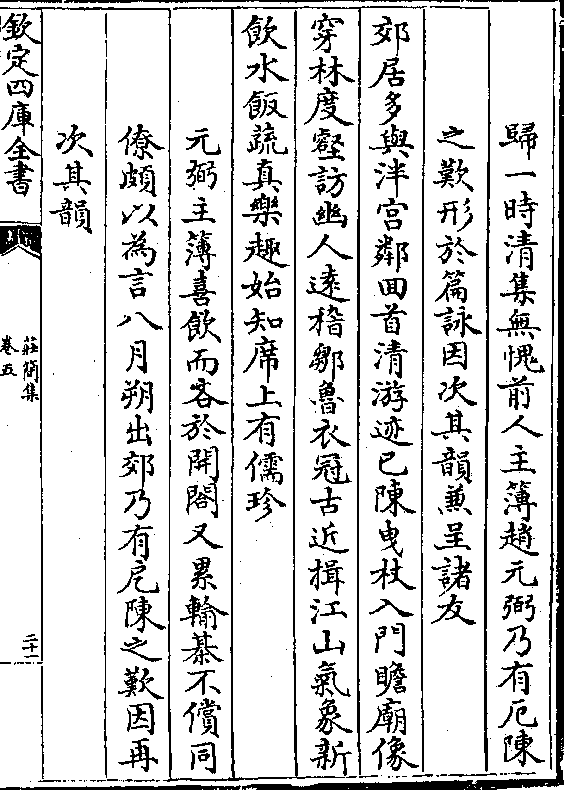 歸一時清集無愧前人主簿趙元弼乃有厄陳
之歎形於篇詠因次其韻兼呈諸友
郊居多與泮宮鄰回首清游迹已陳曳杖入門瞻廟像
穿林度壑訪幽人遠稽鄒魯衣冠古近揖江山氣象新
飲水飯蔬真樂趣始知席上有儒珍
元弼主簿喜飲而吝於開閤又累輸棊不償同
僚頗以為言八月朔出郊乃有戹陳之歎因再
次其韻
欽定四庫全書
莊簡集
卷五
二十一